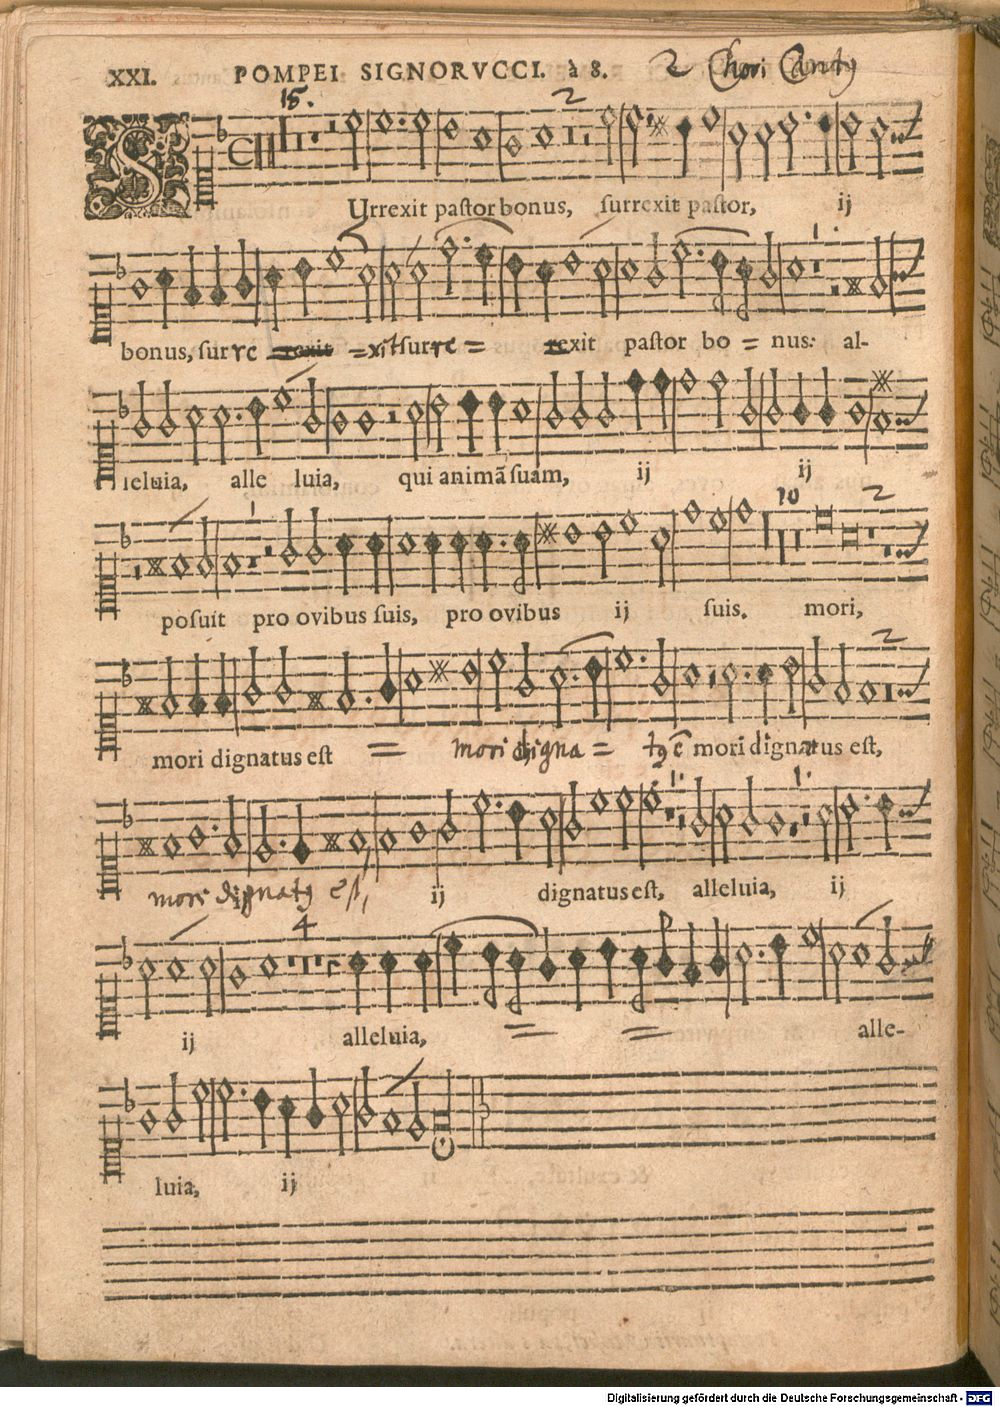 XXI. POMPEI SIGNORVCCI. à 8. 2 Chori Cantꝰ
15. 2
SUrrexit pastor bonus, surrexit pastor, ij
bonus, surre = xit surre = rexit pastor bo = nus: al-
leluia, alle luia, qui animã suam, ij ij
10 2
posuit pro ovibus suis, pro ovibus ij suis. mori,
2
mori dignatus est = mori digna = tꝰ ẽ mori dignatus est,
mori dignatꝰ est, ij dignatus est, alleluia, ij
4
ij alleluia, = = alle-
luia, ij
Digitalisierung gefördert durch die Deutsche Forschungsgemeinschaft - DFG